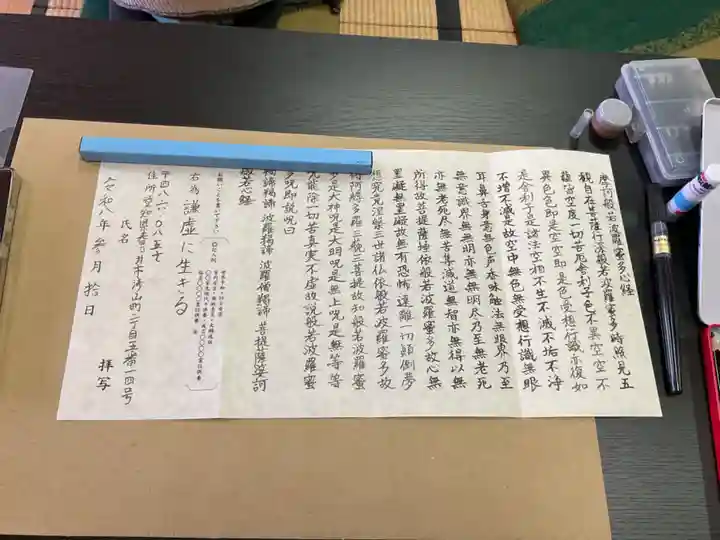 摩訶般若波羅蜜多心経
観自在菩薩行深般若波羅蜜多時照見五
蘊皆空度一切苦厄舎利子色不異空空不
異色色即是空空即是色受想行識亦復如
是舎利子是諸法空相不生不滅不垢不浄
不増不減是故空中無色無受想行識無眼
耳鼻舌身意無色声香味触法無眼界乃至
無意識界無無明亦無無明尽乃至無老死
亦無老死尽無苦集滅道無智亦無得以無
所得故菩提薩埵依般若波羅蜜多故心無
罣礙無罣礙故無有恐怖遠離一切顛倒夢
想究竟涅槃三世諸仏依般若波羅蜜多故
得阿耨多羅三藐三菩提故知般若波羅蜜
多是大神呪是大明呪是無上呪是無等等
呪能除一切苦真実不虚故説般若波羅蜜
多呪即説呪曰
羯諦羯諦 波羅羯諦 波羅僧羯諦 菩提薩婆訶
般若心経
右為 謙虚に生きる
〒四八六-〇八五
住所 愛知県春日井市
氏名 拝写
令和八年 参月 拾日